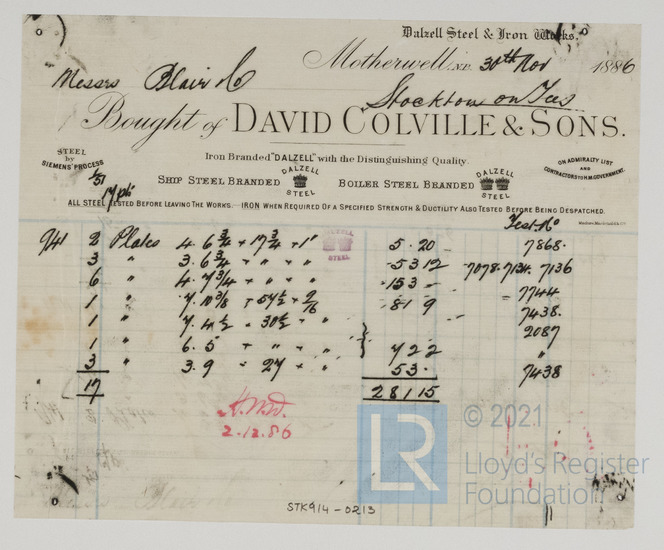 Dalzell Steel & Iron Works,
Motherwell, N.B. 30th Nov 1886
Messrs Blair & Co
Stockton on Tees
Bought of DAVID COLVILLE & SONS.
STEEL by SIEMENS' PROCESS
Iron Branded "DALZELL" with the Distinguishing Quality.
SHIP STEEL BRANDED DALZELL STEEL BOILER STEEL BRANDED DALZELL STEEL
ON ADMIRALTY LIST AND CONTRACTORS TO H.M. GOVERNMENT.
17 pls
ALL STEEL TESTED BEFORE LEAVING THE WORKS.—IRON WHEN REQUIRED OF A SPECIFIED STRENGTH & DUCTILITY ALSO TESTED BEFORE BEING DESPATCHED.
Test No
941 2 Plates 4. 6 3/4 + 17 3/4 + 1" 5. 20 — 7868.
DALZELL STEEL
3 " 3. 6 3/4 + " + " 5 3 12 7078. 7134. 7136
6 " 4. 7 3/4 + " + " 15 3 — 7744
1 " 7. 10 3/8 + 54 1/2 + 9/16 8 1 9 7438.
1 " 7. 4 1/2 + 30 1/2 + " 2087
1 " 6. 5 + " + " } 7 2 2 "
3 " 3. 9 + 27 + " 5 3. 7438
17 28 1 15
2.12.86
LR © 2021
Lloyd's Register
Foundation
STK914-0213